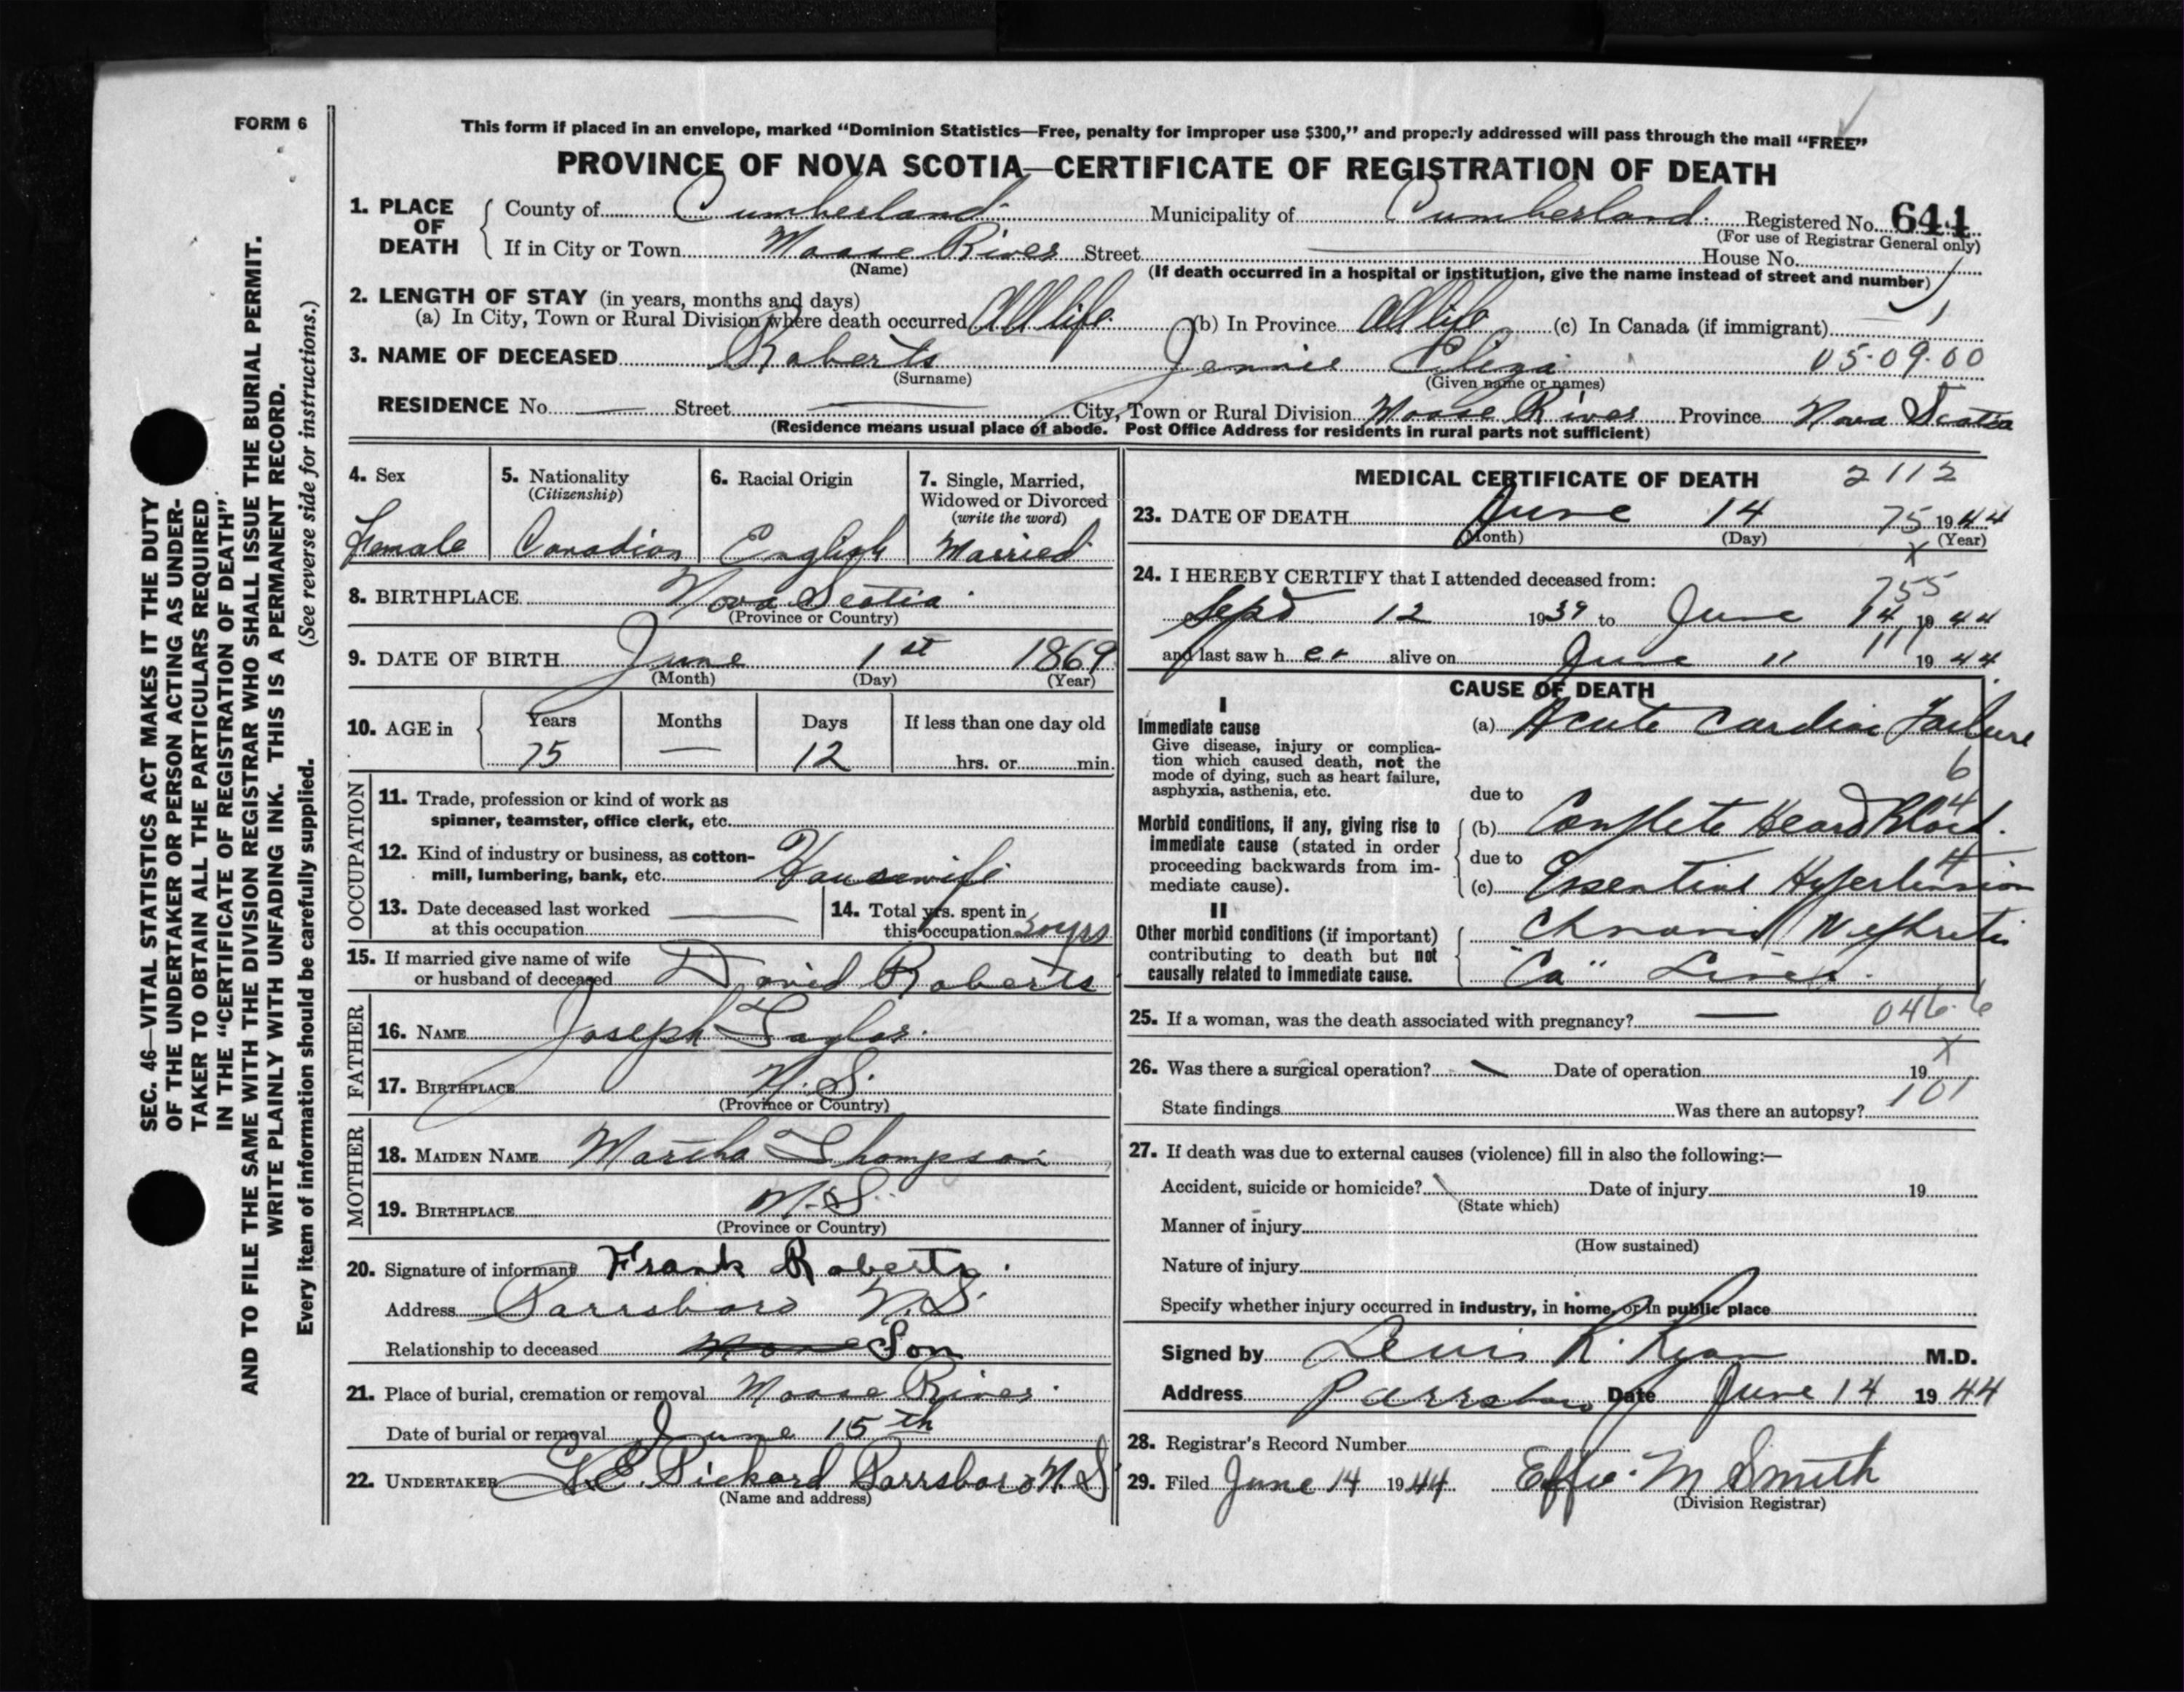 FORM 6
This form if placed in an envelope, marked "Dominion Statistics—Free, penalty for improper use $300," and properly addressed will pass through the mail "FREE"
PROVINCE OF NOVA SCOTIA—CERTIFICATE OF REGISTRATION OF DEATH
1. PLACE OF DEATH
County of Cumberland Municipality of Cumberland Registered No. 644
(For use of Registrar General only)
If in City or Town Moose River Street House No.
(Name) (If death occurred in a hospital or institution, give the name instead of street and number)
2. LENGTH OF STAY (in years, months and days)
(a) In City, Town or Rural Division where death occurred All life (b) In Province All life (c) In Canada (if immigrant)
3. NAME OF DECEASED Roberts Jennie Eliza 05-09-00
(Surname) (Given name or names)
RESIDENCE No. — Street — City, Town or Rural Division Moose River Province Nova Scotia
(Residence means usual place of abode. Post Office Address for residents in rural parts not sufficient)
4. Sex Female
5. Nationality (Citizenship) Canadian
6. Racial Origin English
7. Single, Married, Widowed or Divorced (write the word) Married
8. BIRTHPLACE Nova Scotia
(Province or Country)
9. DATE OF BIRTH June 1st 1869
(Month) (Day) (Year)
10. AGE in Years Months Days If less than one day old
75 — 12 hrs. or min.
OCCUPATION
11. Trade, profession or kind of work as
spinner, teamster, office clerk, etc.
12. Kind of industry or business, as cotton-
mill, lumbering, bank, etc. Housewife
13. Date deceased last worked
at this occupation —
14. Total yrs. spent in
this occupation 50 yrs
15. If married give name of wife
or husband of deceased David Roberts
FATHER
16. NAME Joseph Taylor
17. BIRTHPLACE N.S.
(Province or Country)
MOTHER
18. MAIDEN NAME Martha Thompson
19. BIRTHPLACE N.S.
(Province or Country)
20. Signature of informant Frank Roberts
Address Parrsboro N.S.
Relationship to deceased Son
21. Place of burial, cremation or removal Moose River
Date of burial or removal June 15th
22. UNDERTAKER Pickard Parrsboro N.S
(Name and address)
MEDICAL CERTIFICATE OF DEATH 2112
23. DATE OF DEATH June 14 75 1944
(Month) (Day) (Year)
24. I HEREBY CERTIFY that I attended deceased from:
755
Sept 12 1939 to June 14 1944
and last saw her alive on June 11 1944
CAUSE OF DEATH
I
Immediate cause
Give disease, injury or complica-
tion which caused death, not the
mode of dying, such as heart failure,
asphyxia, asthenia, etc.
(a) Acute Cardiac Failure
6
due to
Morbid conditions, if any, giving rise to
immediate cause (stated in order
proceeding backwards from im-
mediate cause).
(b) Complete Heart Block.
due to
(c) Essential Hypertension
II
Other morbid conditions (if important)
contributing to death but not
causally related to immediate cause.
Chronic Nephritis
"Ca" Liver.
25. If a woman, was the death associated with pregnancy? — 046.6
26. Was there a surgical operation? Date of operation 19
101
State findings Was there an autopsy?
27. If death was due to external causes (violence) fill in also the following:—
Accident, suicide or homicide? Date of injury 19
(State which)
Manner of injury
(How sustained)
Nature of injury
Specify whether injury occurred in industry, in home, or in public place
Signed by Lewis R. Ryan M.D.
Address Parrsboro Date June 14 1944
28. Registrar's Record Number
29. Filed June 14 1944 Effie M Smith
(Division Registrar)
SEC. 46—VITAL STATISTICS ACT MAKES IT THE DUTY
OF THE UNDERTAKER OR PERSON ACTING AS UNDER-
TAKER TO OBTAIN ALL THE PARTICULARS REQUIRED
IN THE "CERTIFICATE OF REGISTRATION OF DEATH"
AND TO FILE THE SAME WITH THE DIVISION REGISTRAR WHO SHALL ISSUE THE BURIAL PERMIT.
WRITE PLAINLY WITH UNFADING INK. THIS IS A PERMANENT RECORD.
Every item of information should be carefully supplied. (See reverse side for instructions.)